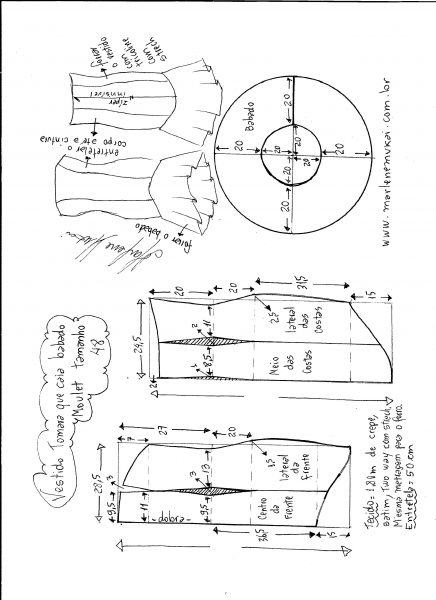 Vestido Tomara que caia babado
Moulet tamanho
48
forrar
o vestido
com
tricoline
com
strech
zíper
invisível
entretelar o
corpo até a cintura
forrar o babado
Babado
20
20
20
20
20
20
20
20
www.marlenemukai.com.br
24,5
2
20
20
31,5
15
1
2
11
8,5
2,5
lateral
das
Costas
Meio
das
Costas
28,5
9,5
3
7
27
20
11
3
13
9,5
3,5
lateral
da
frente
Centro
da
Frente
-dobra-
36,5
15
Tecido= 1,80m de crepe,
cetim, Two way com strech,
Mesma metragem para o forro.
Entretela= 50 cm